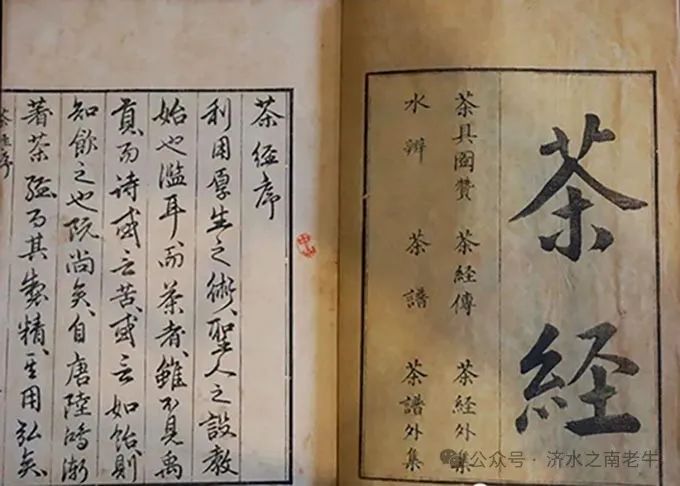 茶経
茶具圖贊 茶経傳 茶経外集
水辨 茶譜 茶譜外集
茶経序
利用厚生之術、聖人之設教
始也濫耳、而茶者、雖不見禹
貢、而詩或云苦、或云如飴、則
知飲之也既尚矣、自唐陸鴻漸
著茶経、而其製精、其用弘矣、
茶経序
公众号 · 济水之南老牛